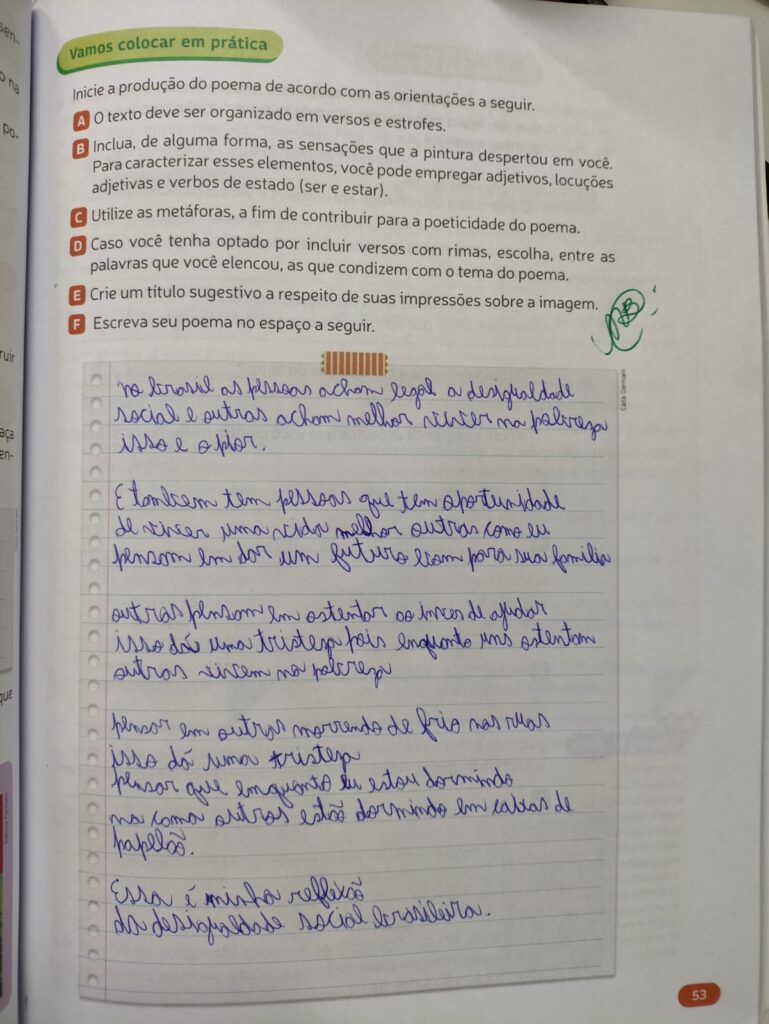 Vamos colocar em prática
Inicie a produção do poema de acordo com as orientações a seguir.
A O texto deve ser organizado em versos e estrofes.
B Inclua, de alguma forma, as sensações que a pintura despertou em você.
Para caracterizar esses elementos, você pode empregar adjetivos, locuções
adjetivas e verbos de estado (ser e estar).
C Utilize as metáforas, a fim de contribuir para a poeticidade do poema.
D Caso você tenha optado por incluir versos com rimas, escolha, entre as
palavras que você elencou, as que condizem com o tema do poema.
E Crie um titulo sugestivo a respeito de suas impressões sobre a imagem.
F Escreva seu poema no espaço a seguir.
no brasil as pessoas acham legal a desigualdade
social e outras acham melhor viver na pobreza
isso e o pior.
E tambem tem pessoas que tem oportunidade
de viver uma vida melhor outras como eu
pensam em dar um futuro bom para sua familia
outras pensam em ostentar ao inves de ajudar
isso dá uma tristeza pois enquanto uns ostentam
outras vivem na pobreza
pensar em outras morrendo de frio nas ruas
isso dá uma tristeza
pensar que enquanto eu estou dormindo
na cama outros estão dormindo em caixas de
papelão.
Essa é minha reflexão
da desigualdade social brasileira.
53